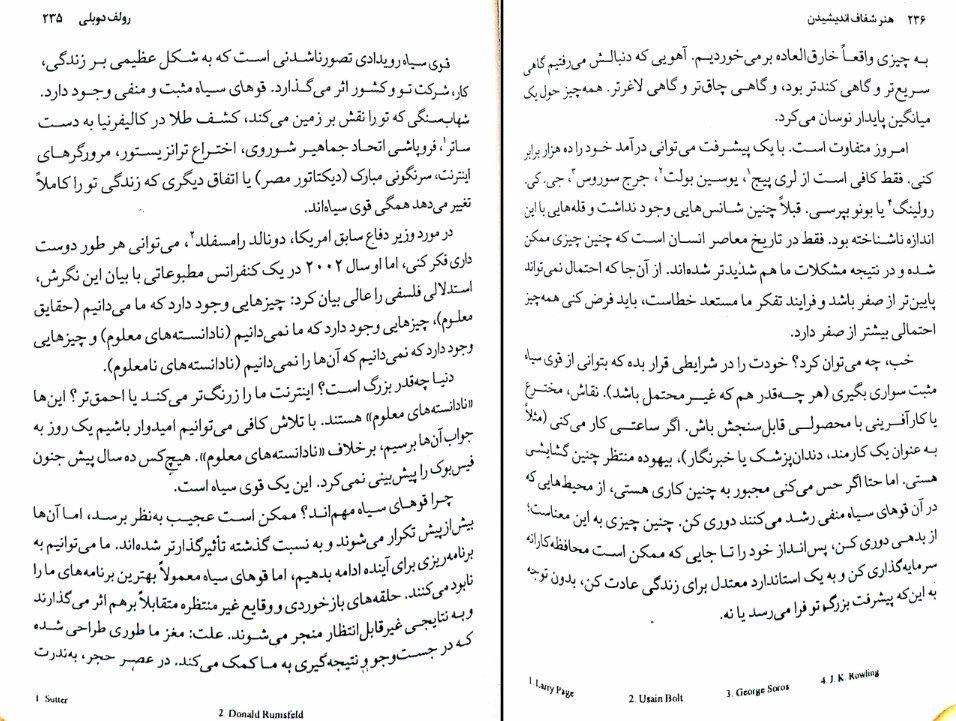 رولف دوبلی ۲۳۵
قوی سیاه رویدادی تصورناشدنی است که به شکل عظیمی بر زندگی،
کار، شرکت تو و کشور اثر می‌گذارد. قوهای سیاه مثبت و منفی وجود دارد.
شهاب‌سنگی که تو را نقش بر زمین می‌کند، کشف طلا در کالیفرنیا به دست
ساتر۱، فروپاشی اتحاد جماهیر شوروی، اختراع ترانزیستور، مرورگرهای
اینترنت، سرنگونی مبارک (دیکتاتور مصر) یا اتفاق دیگری که زندگی تو را کاملاً
تغییر می‌دهد همگی قوی سیاه‌اند.
در مورد وزیر دفاع سابق امریکا، دونالد رامسفلد۲، می‌توانی هر طور دوست
داری فکر کنی، اما او سال ۲۰۰۲ در یک کنفرانس مطبوعاتی با بیان این نگرش،
استدلالی فلسفی را عالی بیان کرد: چیزهایی وجود دارد که ما می‌دانیم (حقایق
معلوم)، چیزهایی وجود دارد که ما نمی‌دانیم (نادانسته‌های معلوم) و چیزهایی
وجود دارد که نمی‌دانیم که آن‌ها را نمی‌دانیم (نادانسته‌های نامعلوم).
دنیا چه‌قدر بزرگ است؟ اینترنت ما را زرنگ‌تر می‌کند یا احمق‌تر؟ این‌ها
«نادانسته‌های معلوم» هستند. با تلاش کافی می‌توانیم امیدوار باشیم یک روز به
جواب آن‌ها برسیم، برخلاف «نادانسته‌های معلوم». هیچ‌کس ده سال پیش جنون
فیس‌بوک را پیش‌بینی نمی‌کرد. این یک قوی سیاه است.
چرا قوهای سیاه مهم‌اند؟ ممکن است عجیب به‌نظر برسد، اما آن‌ها
بیش از پیش تکرار می‌شوند و به نسبت گذشته تأثیرگذارتر شده‌اند. ما می‌توانیم به
برنامه‌ریزی برای آینده ادامه بدهیم، اما قوهای سیاه معمولاً بهترین برنامه‌های ما را
نابود می‌کنند. حلقه‌های بازخوردی و وقایع غیرمنتظره متقابلاً برهم اثر می‌گذارند
و به نتایجی غیرقابل‌انتظار منجر می‌شوند. علت: مغز ما طوری طراحی شده
که در جست‌وجو و نتیجه‌گیری به ما کمک می‌کند. در عصر حجر، به‌ندرت
1. Sutter
2. Donald Rumsfeld
۲۳۶ هنر شفاف اندیشیدن
به چیزی واقعاً خارق‌العاده برمی‌خوردیم. آهویی که دنبالش می‌رفتیم گاهی
سریع‌تر و گاهی کندتر بود، و گاهی چاق‌تر و گاهی لاغرتر. همه‌چیز حول یک
میانگین پایدار نوسان می‌کرد.
امروز متفاوت است. با یک پیشرفت می‌توانی درآمد خود را ده هزار برابر
کنی. فقط کافی است از لری پیج۱، یوسین بولت۲، جرج سوروس۳، جی. کی.
رولینگ۴ یا بونو بپرسی. قبلاً چنین شانس‌هایی وجود نداشت و قله‌هایی با این
اندازه ناشناخته بود. فقط در تاریخ معاصر انسان است که چنین چیزی ممکن
شده و در نتیجه مشکلات ما هم شدیدتر شده‌اند. از آن‌جا که احتمال نمی‌تواند
پایین‌تر از صفر باشد و فرایند تفکر ما مستعد خطاست، باید فرض کنی همه‌چیز
احتمالی بیشتر از صفر دارد.
خب، چه می‌توان کرد؟ خودت را در شرایطی قرار بده که بتوانی از قوی سیاه
مثبت سواری بگیری (هر چه‌قدر هم که غیرمحتمل باشد). نقاش، مخترع
یا کارآفرینی با محصولی قابل‌سنجش باش. اگر ساعتی کار می‌کنی (مثلاً
به عنوان یک کارمند، دندان‌پزشک یا خبرنگار)، بیهوده منتظر چنین گشایشی
هستی. اما حتا اگر حس می‌کنی مجبور به چنین کاری هستی، از محیط‌هایی که
در آن قوهای سیاه منفی رشد می‌کنند دوری کن. چنین چیزی به این معناست:
از بدهی دوری کن، پس‌انداز خود را تا جایی که ممکن است محافظه‌کارانه
سرمایه‌گذاری کن و به یک استاندارد معتدل برای زندگی عادت کن، بدون توجه
به این‌که پیشرفت بزرگ تو فرا می‌رسد یا نه.
1. Larry Page
2. Usain Bolt
3. George Soros
4. J. K. Rowling